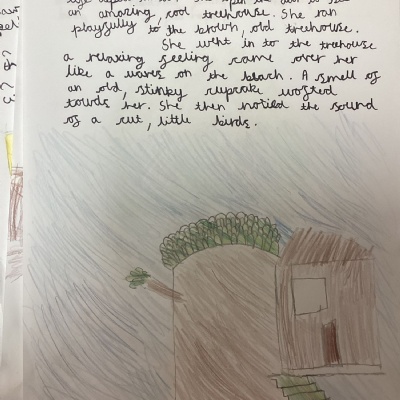 an amazing, cool treehouse. She ran
playfully to the brown, old treehouse.
She went in to the treehouse
a relaxing feeling came over her
like a waves on the beach. A smell of
an old, stinky cupcake wofted
towds her. She then noticed the sound
of a cut, little birds.